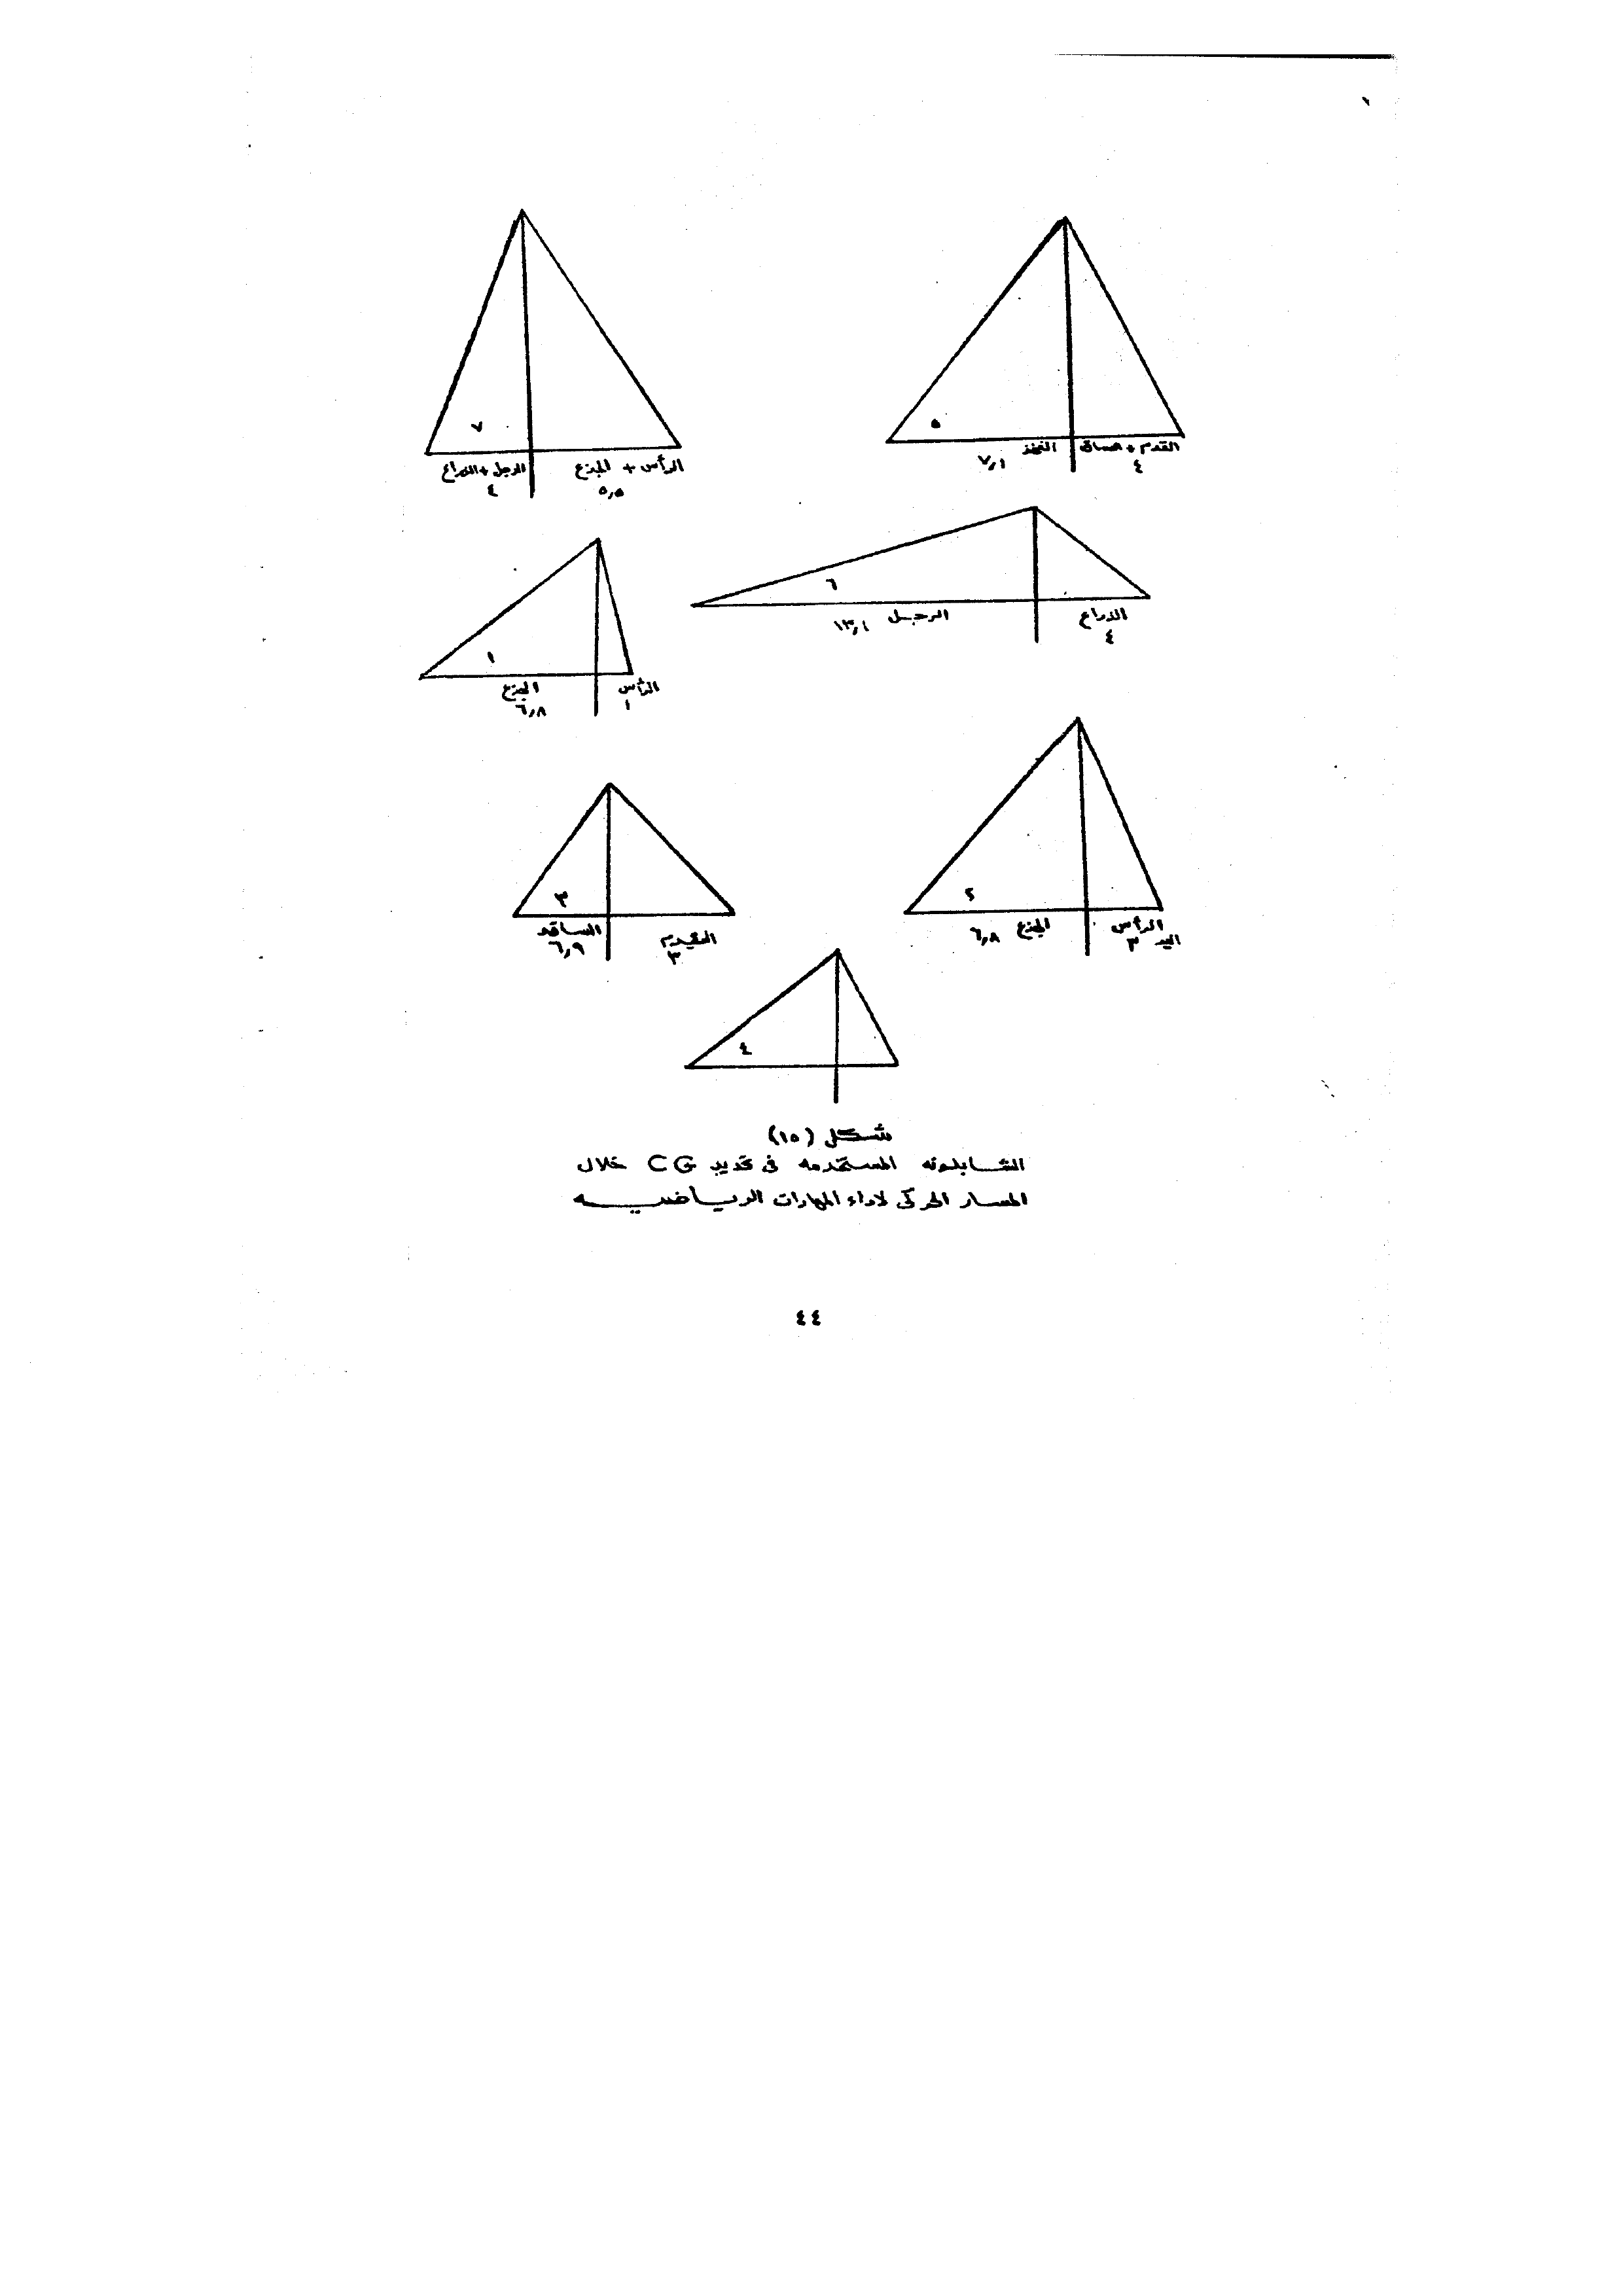 ٧
٥
الرجل + الذراع
٤
الرأس + الجذع
٥٫٥
الفخذ
٧٫١
القدم + الساق
٤
٦
الرجل
١٣٫١
الذراع
٤
١
الجذع
٦٫٨
الرأس
١
٣
الساق
٦٫٩
القدم
٣
٢
الجذع
٦٫٨
الرأس
اليد ٣
٤
شكل (١٥)
الشابلونه المستخدمه فى تحديد CG خلال
المسار الحركى لاداء المهارات الرياضيه
٤٤